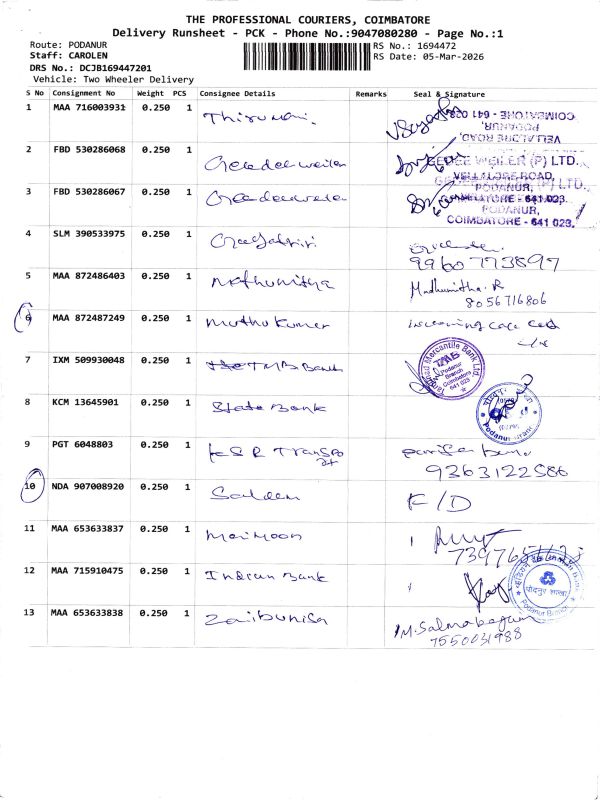 THE PROFESSIONAL COURIERS, COIMBATORE
Delivery Runsheet - PCK - Phone No.:9047080280 - Page No.:1
Route: PODANUR RS No.: 1694472
Staff: CAROLEN RS Date: 05-Mar-2026
DRS No.: DCJB169447201
Vehicle: Two Wheeler Delivery
S No Consignment No Weight PCS Consignee Details Remarks Seal & Signature
1 MAA 716003931 0.250 1
COIMBATORE - 641 023
PODANUR,
VELLALORE ROAD,
2 FBD 530286068 0.250 1
GEDEE WEILER (P) LTD.,
VELLALORE ROAD,
PODANUR,
3 FBD 530286067 0.250 1
COIMBATORE - 641 023.
PODANUR,
COIMBATORE - 641 023.
4 SLM 390533975 0.250 1
9960773897
5 MAA 872486403 0.250 1 Mathumitha Madhumitha. R
8056716806
6 MAA 872487249 0.250 1 Muthu Kumar Incoming
7 IXM 509930048 0.250 1 TMB Bank
Tamilnad Mercantile Bank Ltd.
TMB
Podanur
Branch
Coimbatore
641 023
8 KCM 13645901 0.250 1 State Bank
9 PGT 6048803 0.250 1 KSR Transpo
rt
9363122586
10 NDA 907008920 0.250 1 K/D
11 MAA 653633837 0.250 1 Maimoon
12 MAA 715910475 0.250 1 Indian Bank
पोदनूर शाखा
Podanur Branch
13 MAA 653633838 0.250 1 Zaibunisa M. Salmabegam
7550031988